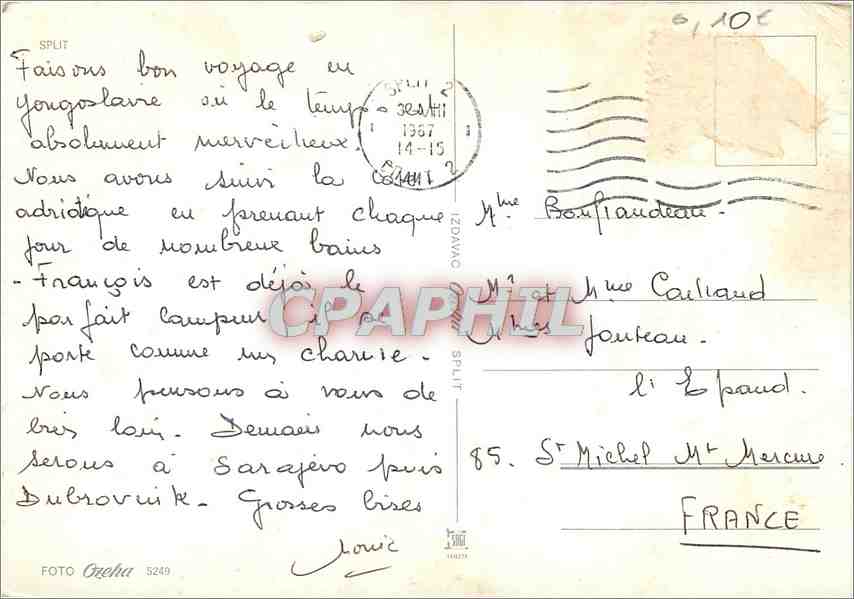 SPLIT
Faisons bon voyage en
Yougoslavie où le temps
absolument merveilleux.
Nous avons suivi la côte
adriatique en prenant chaque
jour de nombreux bains
- François est déjà le
parfait campeur il se
porte comme un charme.
Nous pensons à vous de
très loin. Demain nous
serons à Sarajevo puis
Dubrovnik. Grosses bises
FOTO Ozeha 5249
SPLIT 2
1987
14-15
IZDAVAC SPLIT
6,10€
Mme Bonflandeau.
Mr et Mme Cailraud
Mmes Jouteau.
l'Epaud.
85. St Michel Mt Mercure
FRANCE
CPAPHIL